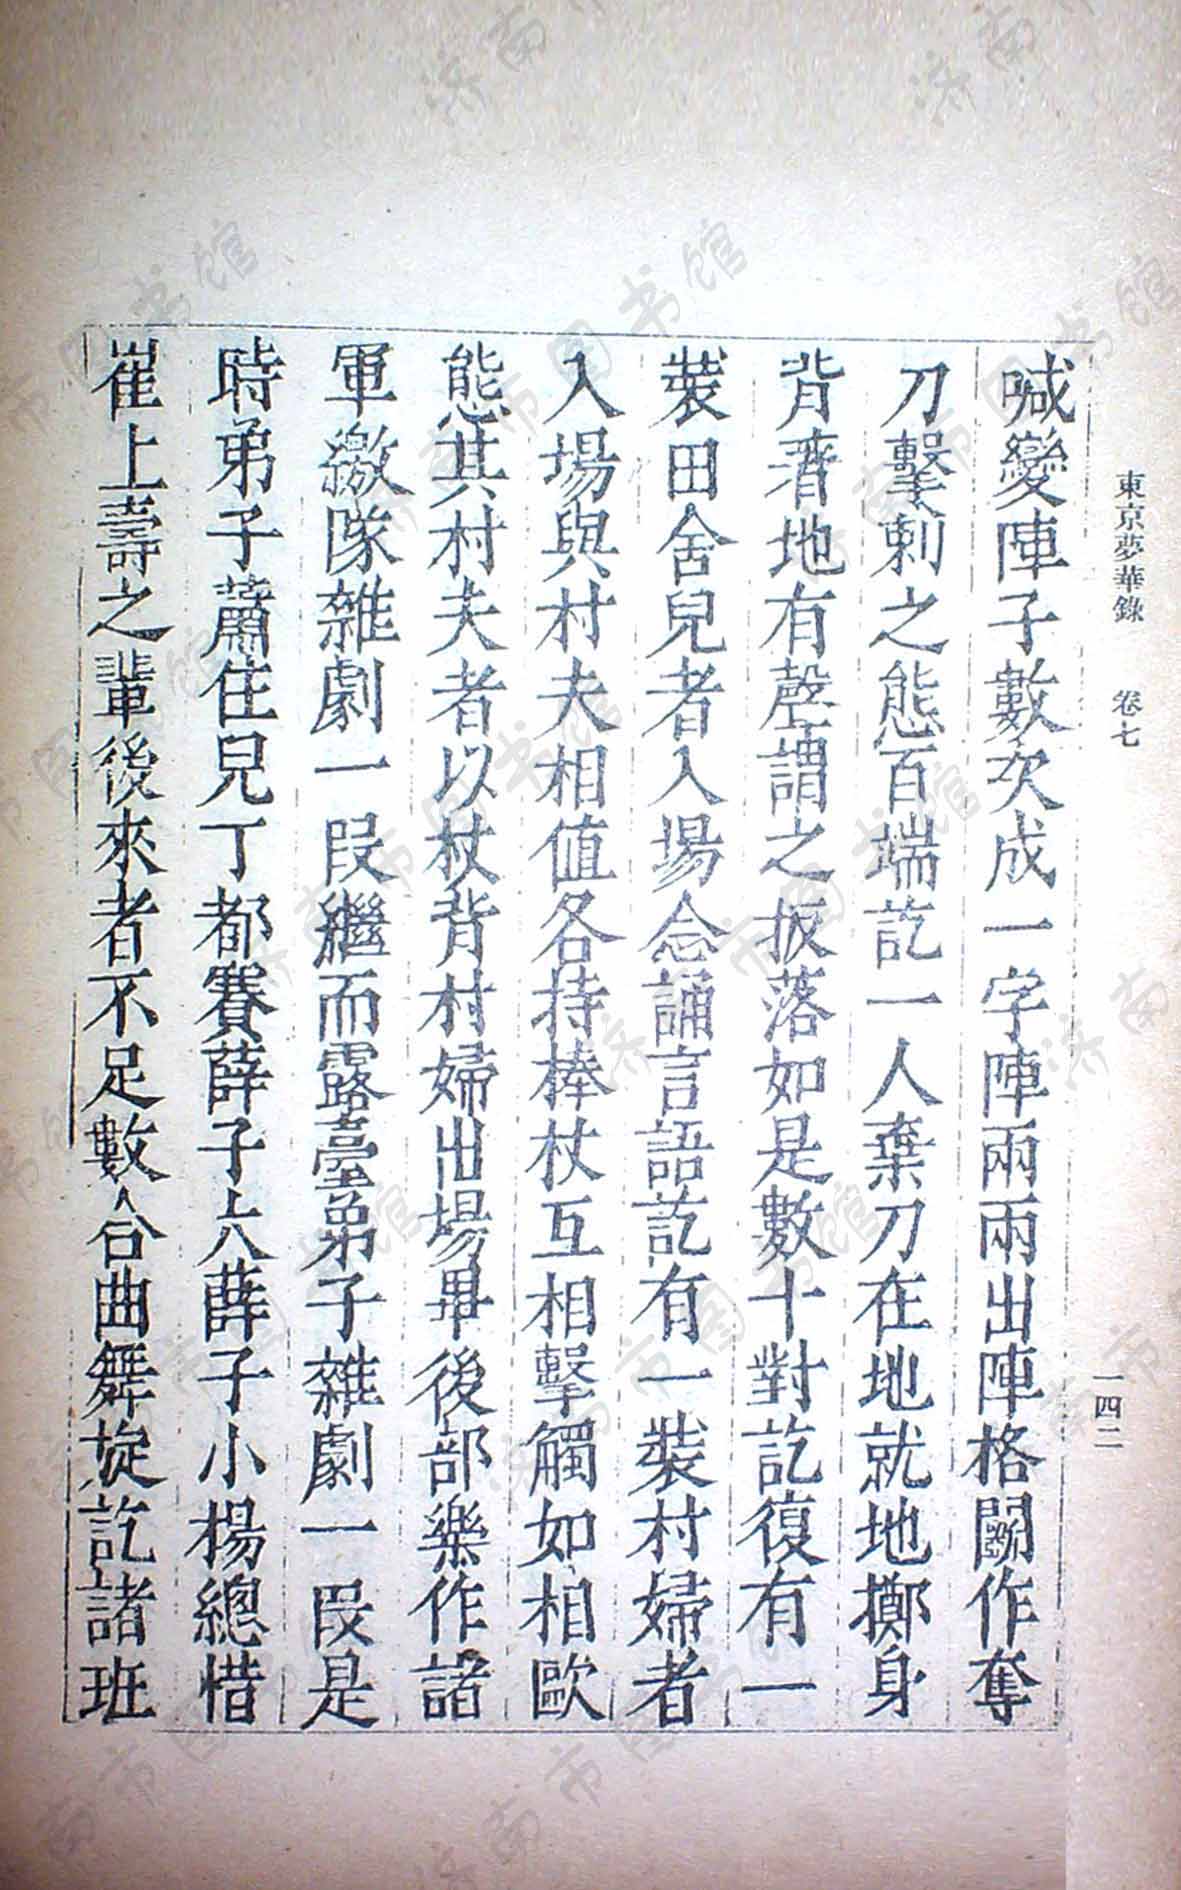 東京夢華錄 卷七 一四二
喊變陣子數次成一字陣兩兩出陣格鬭作奪
刀擊刺之態百端訖一人棄刀在地就地擲身
背著地有聲謂之扳落如是數十對訖復有一
裝田舍兒者入場念誦言語訖有一裝村婦者
入場與村夫相值各持棒杖互相擊觸如相歐
態其村夫者以杖背村婦出場畢後部樂作諸
軍繳隊雜劇一段繼而露臺弟子雜劇一段是
時弟子蕭住兒丁都賽薛子大薛子小楊總惜
崔上壽之輩後來者不足數合曲舞旋訖諸班
济南市图书馆